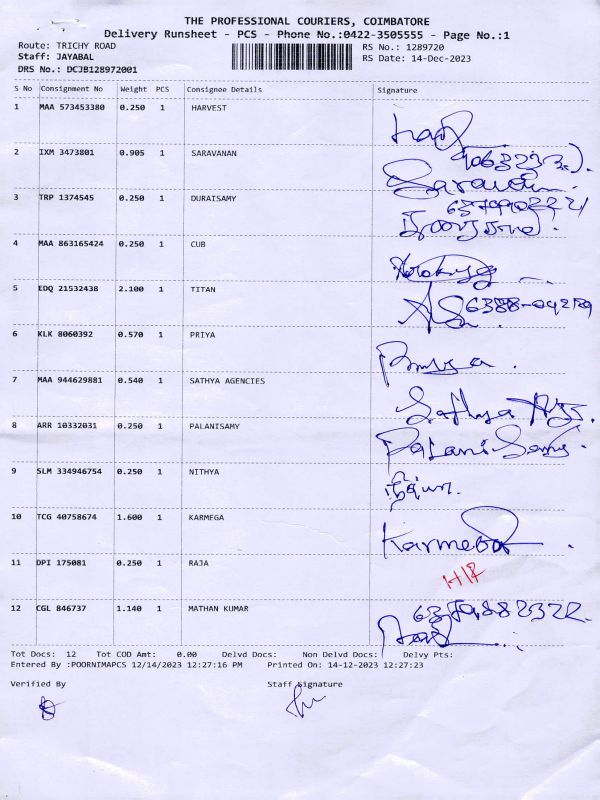 THE PROFESSIONAL COURIERS, COIMBATORE
Delivery Runsheet - PCS - Phone No.:0422-3505555 - Page No.:1
Route: TRICHY ROAD RS No.: 1289720
Staff: JAYABAL RS Date: 14-Dec-2023
DRS No.: DCJB128972001
S No Consignment No Weight PCS Consignee Details Signature
1 MAA 573453380 0.250 1 HARVEST
2 IXM 3473801 0.905 1 SARAVANAN
Saravan
3 TRP 1374545 0.250 1 DURAISAMY
4 MAA 863165424 0.250 1 CUB
5 EDQ 21532438 2.100 1 TITAN
6 KLK 8060392 0.570 1 PRIYA
7 MAA 944629881 0.540 1 SATHYA AGENCIES
Sathya
8 ARR 10332031 0.250 1 PALANISAMY
Palanisamy
9 SLM 334946754 0.250 1 NITHYA
10 TCG 40758674 1.600 1 KARMEGA
Karmega
11 DPI 175081 0.250 1 RAJA
12 CGL 846737 1.140 1 MATHAN KUMAR
Tot Docs: 12 Tot COD Amt: 0.00 Delvd Docs: Non Delvd Docs: Delvy Pts:
Entered By :POORNIMAPCS 12/14/2023 12:27:16 PM Printed On: 14-12-2023 12:27:23
Verified By Staff Signature